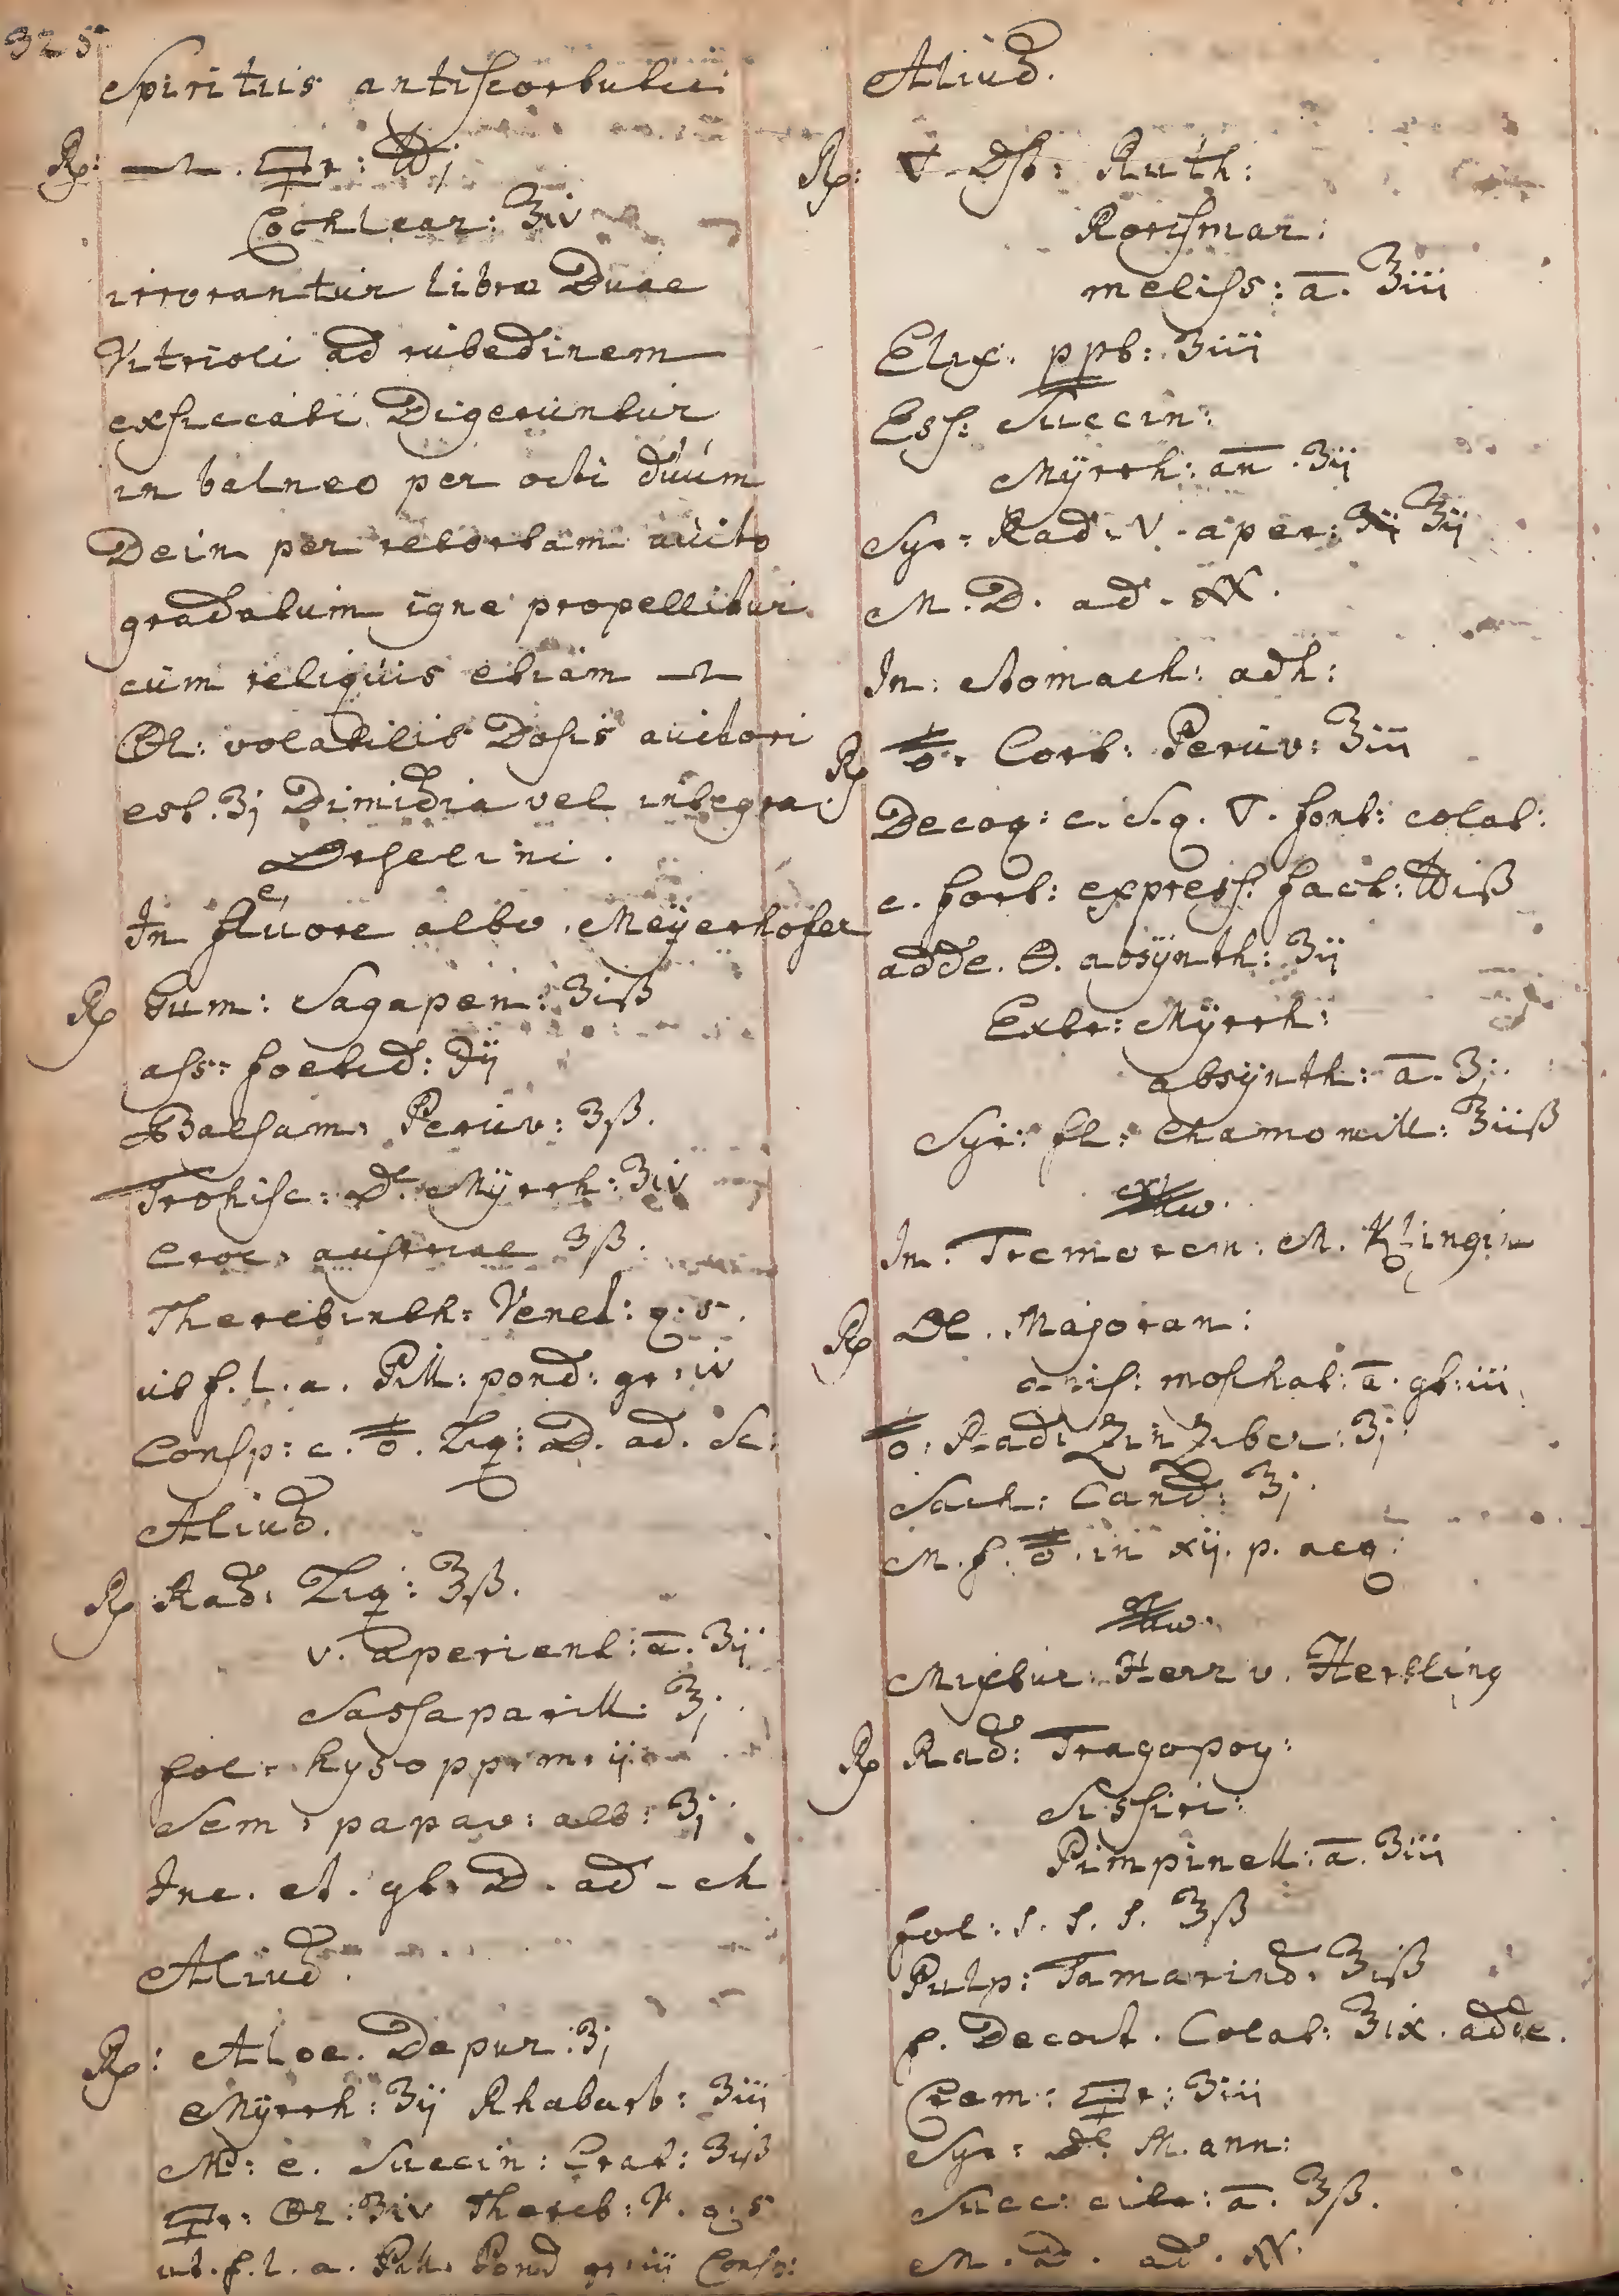 325
Spiritus antiscorbutici
℞: . r: ℔j
Cochlear: ℥iv
irrorantur libræ Duae
Vitrioli ad rubedinem
exsiccati Digeruntur
in balneo per octi duum
Dein per retortam aucto
gradatum igne propellitur
cum reliquis etiam
volatilis Dosis auctori
est ʒj Dimidia vel integra
In fluore albo. Meÿerhofer
℞ Gum: Sagapen: ʒiß
ass: foetid: ℈ij
Balsam: Peruv: ʒß.
Trohisc: De Mÿrrh: ʒiv
Croc. austriae ʒß.
Therebinth: Venet: q. s.
ut f. l. a. Pill: pond: gr. iv
Consp: c. Liq: D. ad. Sc:
Aliud.
℞ Rad. Liq: ℥ß.
v. aperient: a. ʒij
Sassaparill: ℥j.
fol. hysopp. m. ij
Sem: papav: alb: ʒj.
Inc. et. gt. D. ad. ch
Aliud.
℞: Aloe. Depur: ʒj
Mÿrrh: ʒij Rhabarb: ʒiij
Succin: Crat: ʒijß
ʒiv Thereb: V. q. s
ut. f. l. a. Pill. Pond gr. iij Consp:
Aliud.
℞: ▽ Dst: Ruth:
Rorismar:
meliss: a. ℥iii
Elix. ppt: ʒiii
Ess: Succin:
Mÿrrh: an. ʒij
Syr: Rad. V. aper: ℥ij
M. D. ad.
In: stomach: adh:
℞ Cort: Peruv: ℥iii
Decoq: c. S. q. ▽. font: colat:
c. fort: express: fact: ℔iß
adde. absÿnth: ʒij
Extr: Mÿrrh:
absÿnth: a. ʒj.
Syr: fl: Chamomill: ℥iiß
In: Tremorem: M. Klingin
℞ Ol. Majoran:
nis: moshat: a. gt: iii
Rad: Zinziber: ʒj.
Sach: Cand: ℥j.
M. f. in xij. p. aeq:
Mixtur: Herr v. Hertling
℞ Rad: Tragopog:
Sissiri:
Pimpinell: a. ʒiii
fol: s. s. s. ℥ß
Pulp: Tamarind. ℥iß
f. Decoct. Colat: ℥ix. adde.
Crem: r: ʒiii
Syr: de Mann:
Succ: citr: a. ℥ß.
M. D. ad.